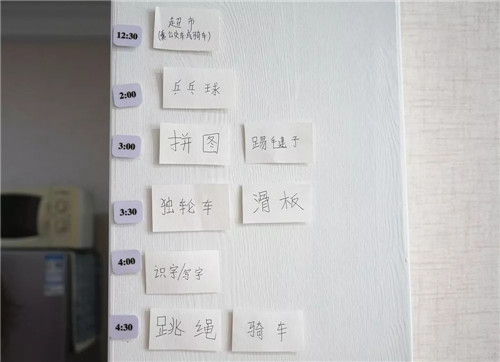 12:30
超市
(乘公交车或骑车)
2:00
乒乓球
3:00
拼图
踢毽子
3:30
独轮车
滑板
4:00
识字/写字
4:30
跳绳
骑车